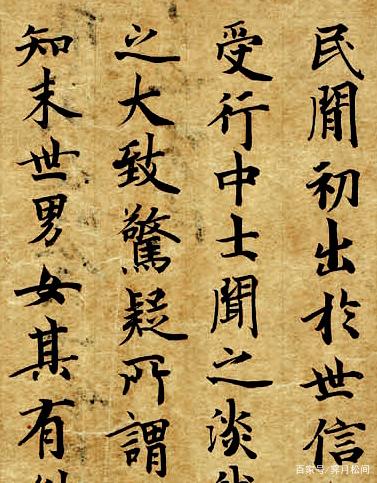 民閒初出於世信
受行中士聞之淡
之大致驚疑所謂
知末世男女其有
百家号/霁月松间